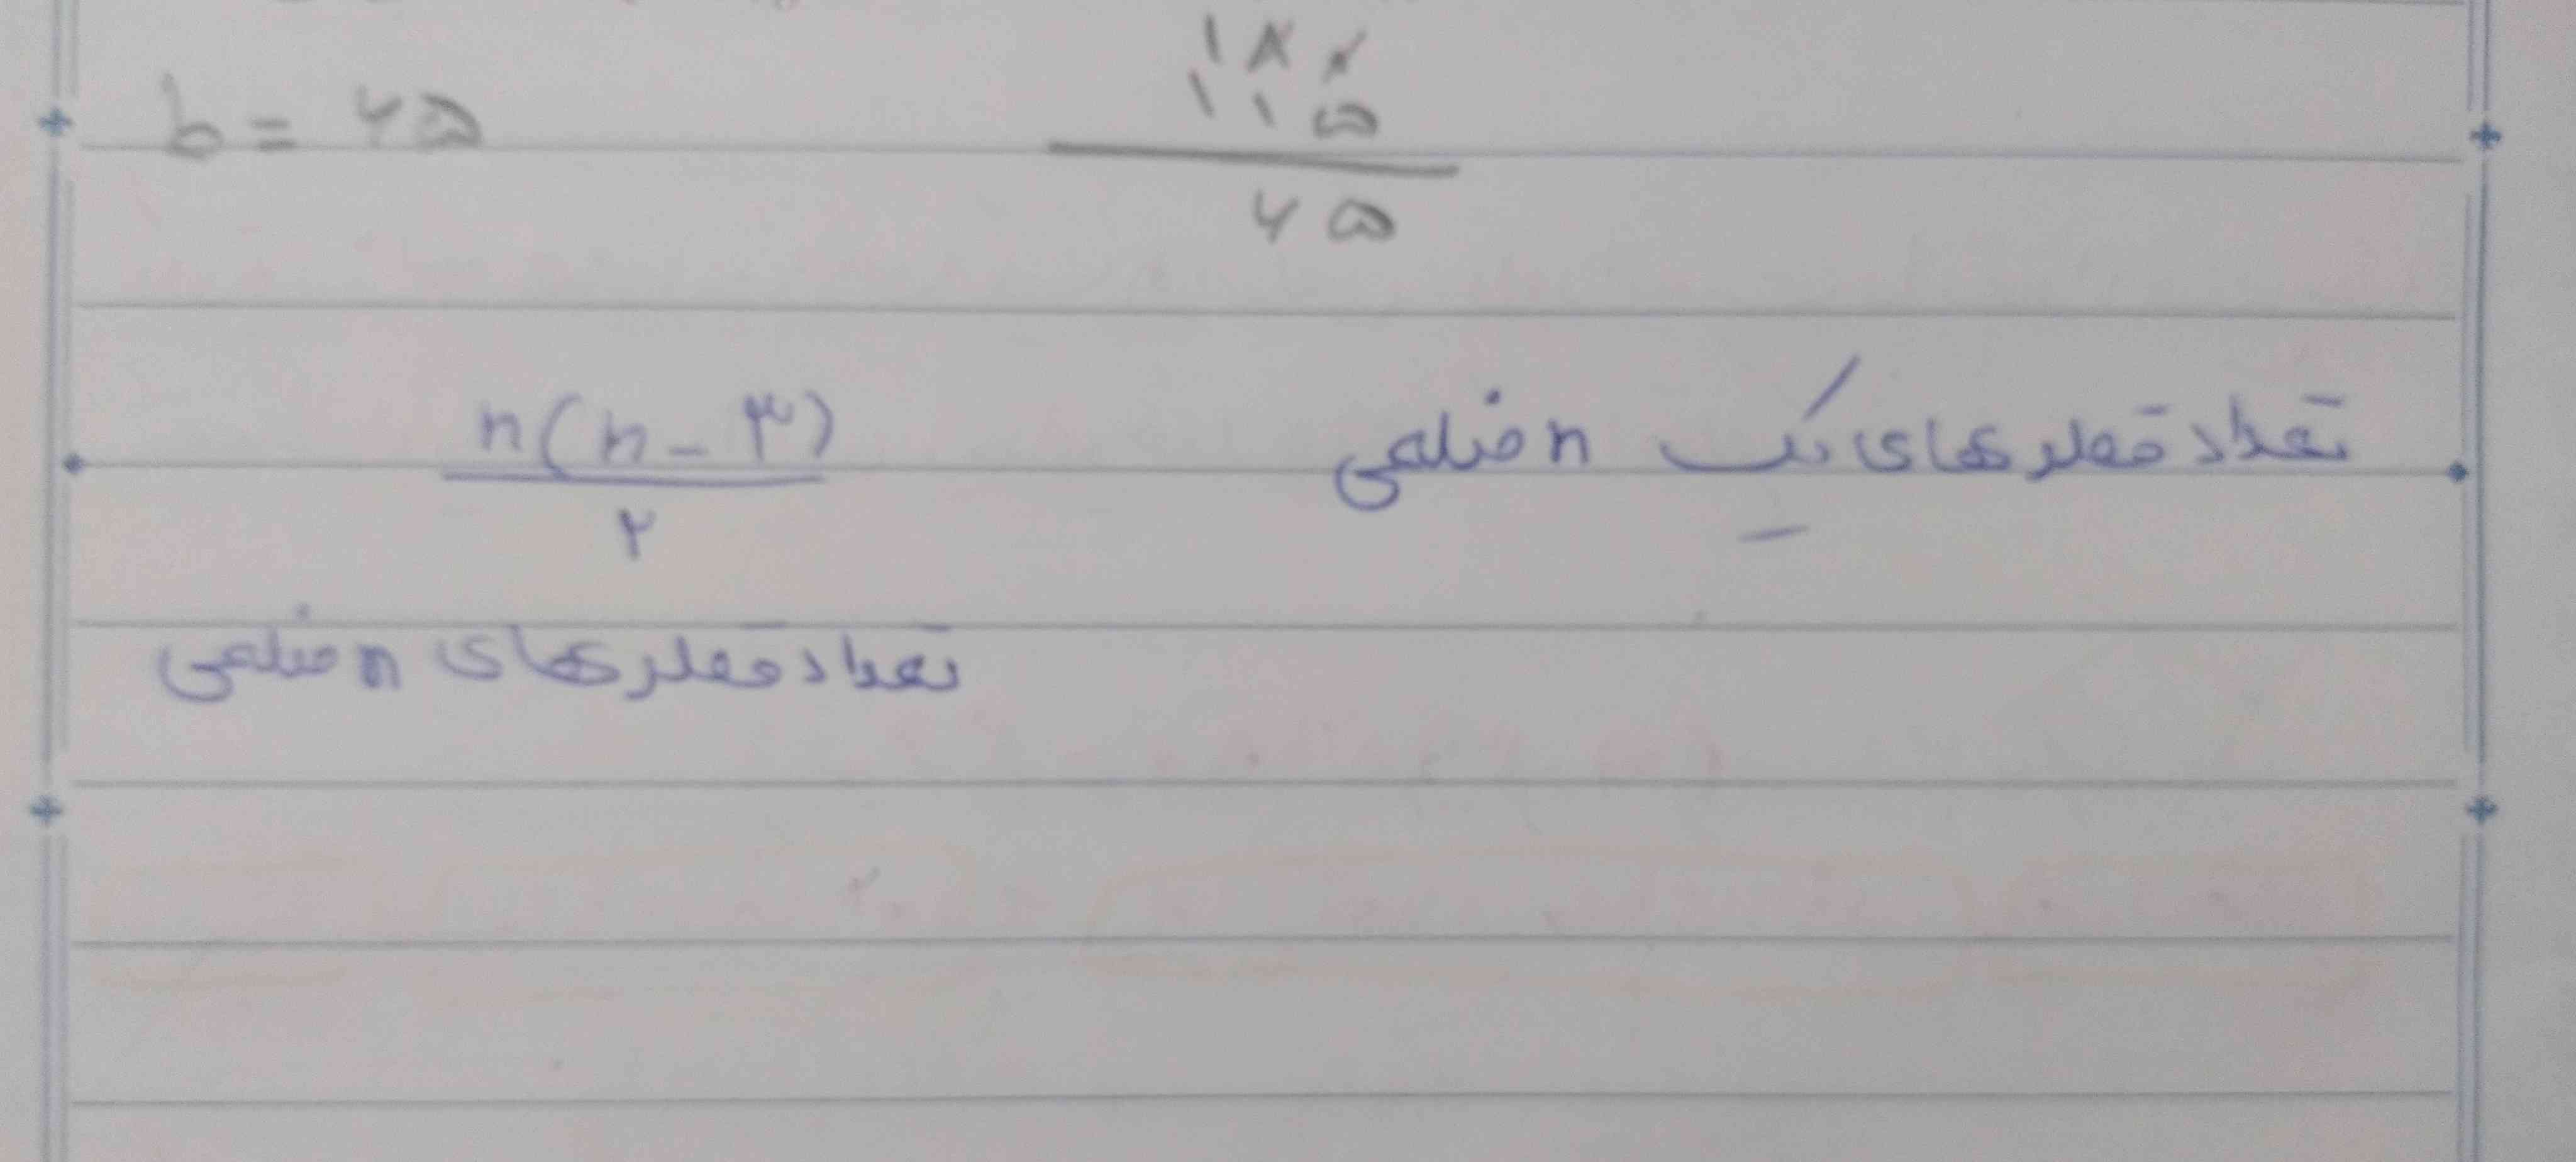 b = ۶۵
۱۸۰
۱۱۵
۶۵
تعداد قطرهای یک n ضلعی
n(n-۳)
۲
تعداد قطرهای n ضلعی